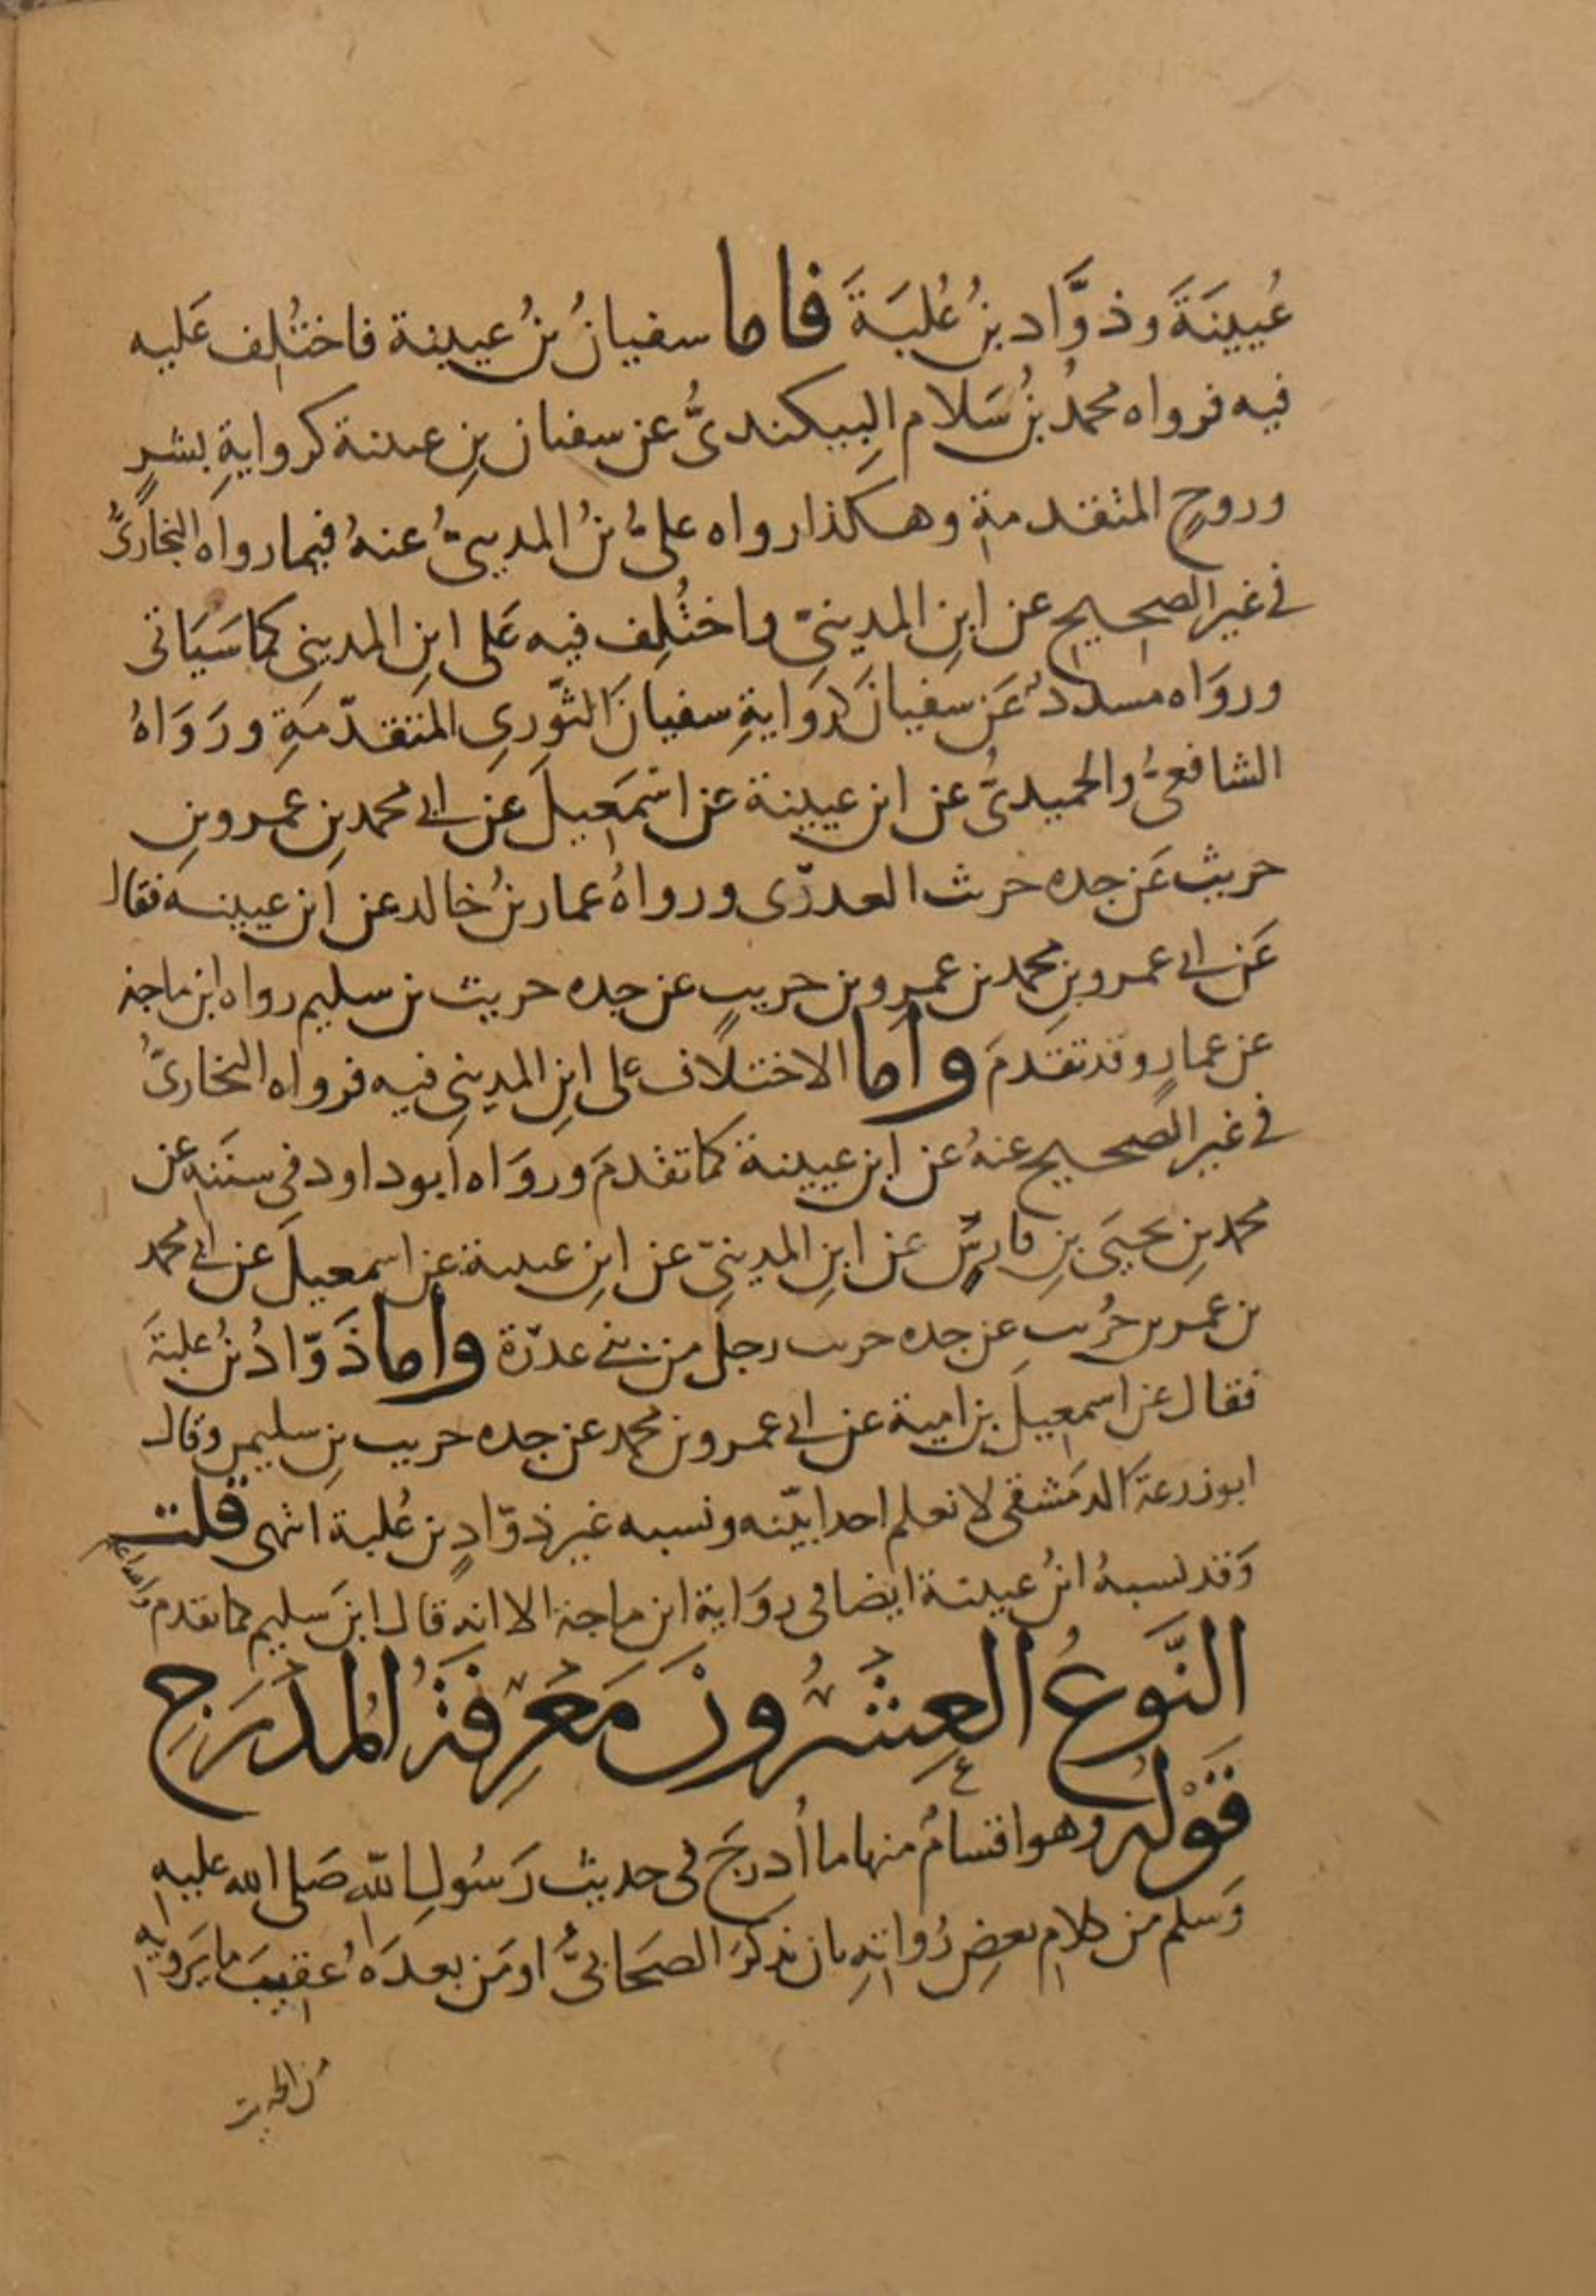 عُيينَةَ وذوَّاد بنُ عُلبَةَ فاما سفيانُ بنُ عيينة فاختُلِف عَليه
فيه فرواه محمدُ بنُ سَلام البِيكندىُّ عن سفيان بنِ عيينة كروايةِ بشرٍ
وروحٍ المتقدمةِ وهكذا رواه علىُّ بنُ المدينىُّ عنهُ فيما رواه البخارىُّ
فى غير الصحيح عن ابنِ المدينىّ واختُلِف فيه عَلى ابنِ المدينى كما سَيَاتى
وروَاه مسددٌ عَن سفيانَ كروَايةِ سفيانَ الثّورىِ المتقدّمَةِ ورَوَاهُ
الشافعىُّ والحميدىُّ عن ابن عيينة عن اسْمَعِيلَ عَن ابى محمد بنِ عمرو بنِ
حريث عَن جده حريث العذرّى ورواهُ عمار بنُ خالد عن ابن عيينة فقال
عَن ابى عمرو بنِ محمد بن عمرِو بن حريثٍ عن جده حريث بن سليم رواه ابن ماجة
عن عمارٍ وقد تقدمَ وأما الاختلاف على ابنِ المدينىِ فيه فرواه البخارىُّ
فى غير الصحيح عنهُ عن ابن عيينة كما تقدمَ وروَاه ابوداود فى سننه عن
محمد بنِ يحيَى بنِ فارسٍ عن ابنِ المدينىّ عن ابنِ عيينة عن اسمعيلَ عن ابى محمد
بن عمرو بن حُريث عن جده حريث رجلٍ من بنى عذرة وأما ذَوّادُ بنُ علبةَ
فقال عن اسمعِيلَ بن امية عن ابى عمرو بن محمد عن جده حريث بنِ سليم وقال
ابوزرعة الدمَشقى لا نعلم احدا بيّنه ونسبه غير ذوّادٍ بن عُلبة انتهى قلت
وَقد نسبهُ ابنُ عيينة ايضا فى روَاية ابن ماجة الا انه قال ابنَ سليم كما تقدم والله اعلم
النَّوعُ العِشرُونَ مَعرِفَةُ المُدرَجِ
قَوْله وهو اقسامٌ منها ما أُدرجَ فى حديث رَسُولِ الله صَلى الله عليه
وَسلم من كلامِ بعضِ رُواتِهِ بان يذكرَ الصَحَابىُّ او مَن بعدَهُ عقِيبَ ما يَرويهِ
من الحديث